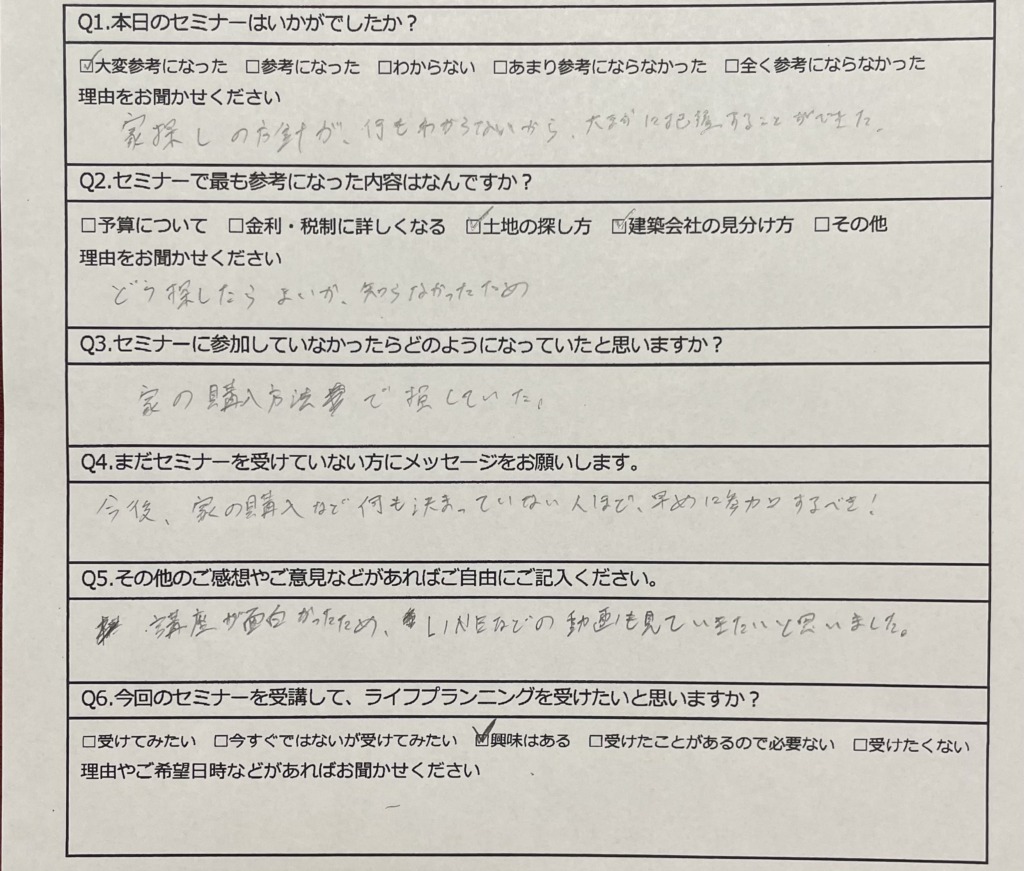 Q1.本日のセミナーはいかがでしたか？
☑大変参考になった □参考になった □わからない □あまり参考にならなかった □全く参考にならなかった
理由をお聞かせください
家探しの方針が、何もわからないから、大まかに把握することができた。
Q2.セミナーで最も参考になった内容はなんですか？
□予算について □金利・税制に詳しくなる ☑土地の探し方 ☑建築会社の見分け方 □その他
理由をお聞かせください
どう探したらよいか、知らなかったため
Q3.セミナーに参加していなかったらどのようになっていたと思いますか？
家の購入方法で損していた。
Q4.まだセミナーを受けていない方にメッセージをお願いします。
今後、家の購入など何も決まっていない人ほど、早めに参加するべき！
Q5.その他のご感想やご意見などがあればご自由にご記入ください。
講座が面白かったため、LINEなどの動画も見ていきたいと思いました。
Q6.今回のセミナーを受講して、ライフプランニングを受けたいと思いますか？
□受けてみたい □今すぐではないが受けてみたい ☑興味はある □受けたことがあるので必要ない □受けたくない
理由やご希望日時などがあればお聞かせください